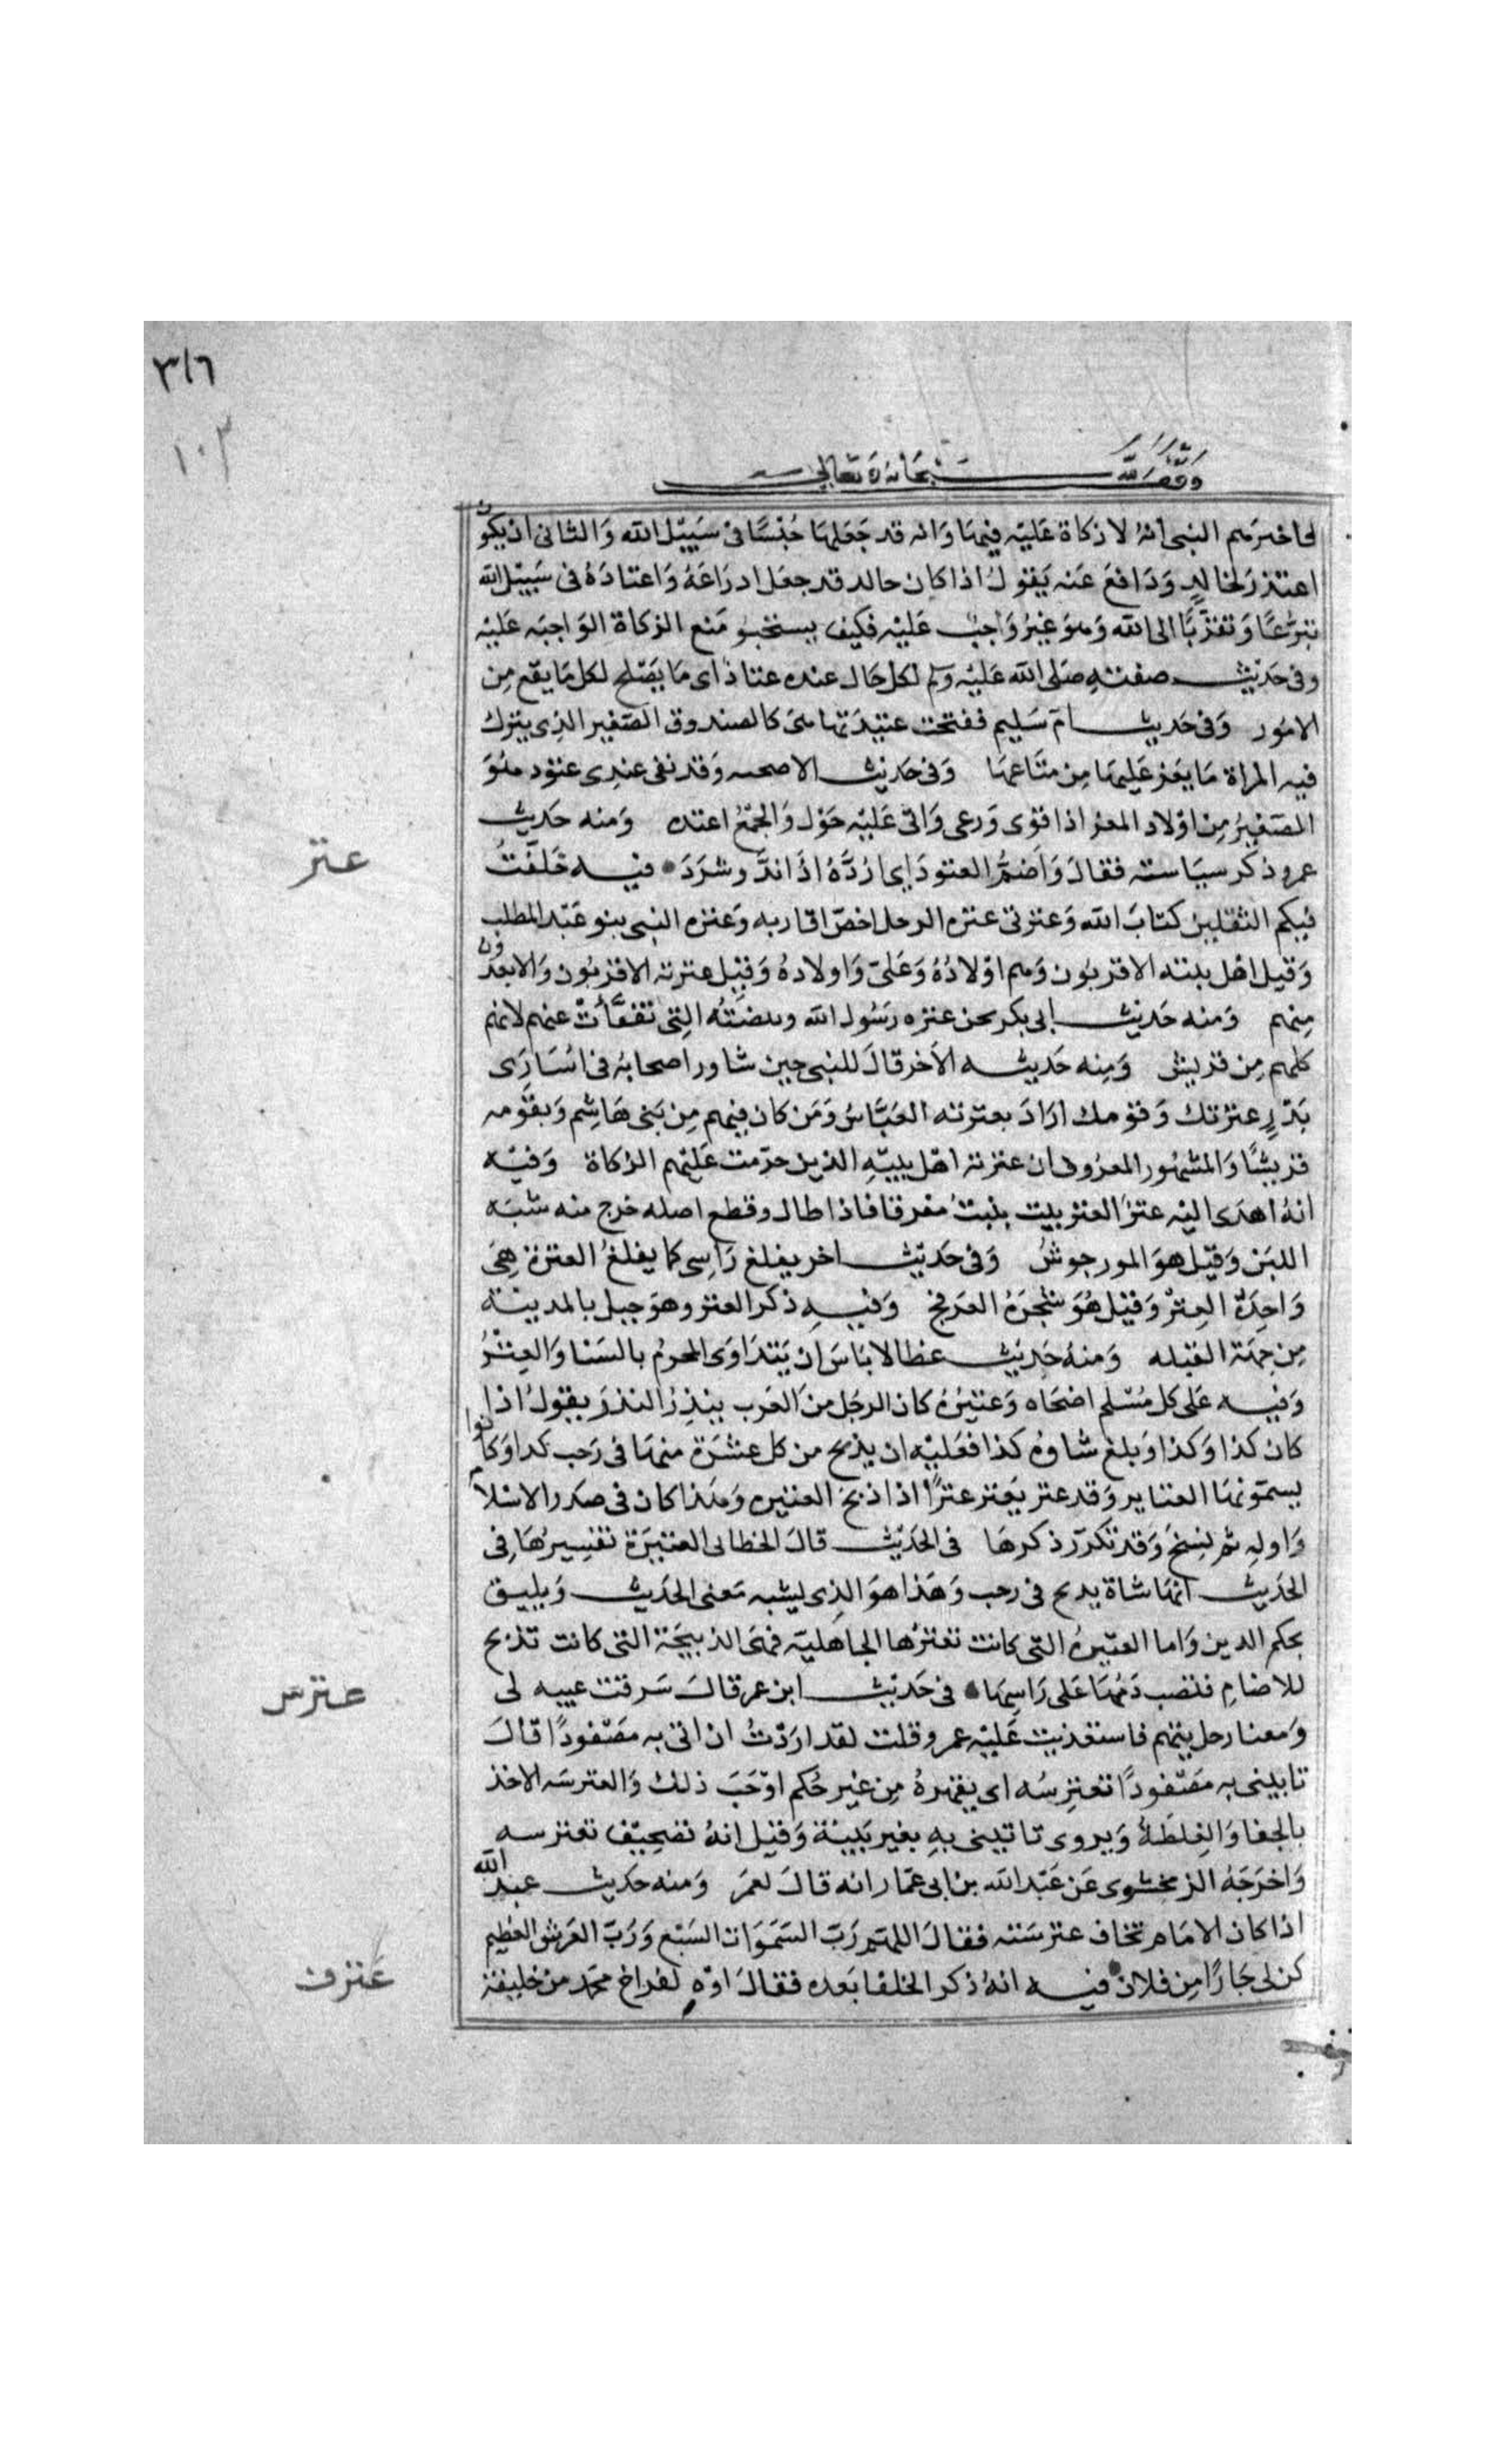 ٣١٦
١٠٣
وقف لله سبحانه وتعالى
فاخبرهم النبى انهُ لا زكاة عَليْه فيهَا وَانه قد جَعَلهَا حُبْسًا فى سَبيْل الله وَالثانى ان يكون
اعتذرَ لخالدٍ وَدَافعَ عَنه يَقولُ اذا كان خالد قد جعَل ادرَاعَهُ وَاعتادَهُ فى سَبيْل الله
تبرّعًا وَتقرّبًا الى الله وَهوَ غيرُ وَاجبٍ عَليْه فكيف يستخير مَنع الزكاة الوَاجبَه عَليْه
وفى حَديْث صفتهِ صَلى الله عَليْه وسلم لكل حَال عنده عتاد اى مَا يَصْلح لكل مَا يقع مِن
الامُور وَفى حَديث امّ سَليم ففتحت عتيدَتها هى كالصندوق الصَغير الذِى يترك
فيه المراة مَا يَعز عَليهَا مِن متَاعهَا وَفى حَديْث الاضحيه وَقد نفى عندِى عتوْد هوَ
الصَغيرُ مِن اوْلاد المعز اذا قوى وَرعى وَاتى عَليْه حَوْل وَالجمْعُ اعتده وَمنه حَديث
عمر وذكر سيَاسته فقالَ وَاضمُّ العتودَ اى اَرُدَّهُ اذَا ندَّ وشرَدَ فيه خَلفْتُ
فيكم الثقلين كتابَ الله وَعترتى عترة الرجل اخصّ اقاربه وَعترة النبى بنو عَبْد المطلب
وَقيل اهْل بيته الاقربُون وَهم اوْلادُهُ وَعَلىّ وَاولادهُ وَقيْل عترته الاقربُون وَالابعدُون
مِنهم وَمنه حَديْث ابى بكر نحن عترة رَسُول الله وبيضَتُه التِى تفقأتْ عنهم لانهم
كلهم مِن قريش وَمِنه حَديثه الآخر قالَ للنبى حين شاور اصحابَه فى اسَارَى
بَدْرٍ عترتك وَقوْمك ارَادَ بعترته العَبَّاسَ وَمَن كان فيهم مِن بَنى هَاشِم وَبقوْمه
قريشًا وَالمشهُور المعرُوف ان عترته اهْل بيتِهِ الذين حرّمت عَليْهم الزكاة وَفيْه
انهُ اهدَى اليْه عترٌ العتر بيت ينبتُ مفرقا فاذا طال وقطع اصله خرج منه شبَه
اللبَن وَقيْل هوَ المورجوشُ وَفى حَديْث اخر يفلغ رَاسِى كما يفلغُ العترة هِىَ
وَاحِدَة العِتْر وَقيْل هُوَ شجرَةُ العَرفج وَفيهِ ذكر العتر وهوَ جبل بالمدينة
مِن جهَة القبله وَمنهُ حَديْث عطا لا بَاسَ ان يَتدَاوَى المحرمُ بالسَنا وَالعِتْرُ
وَفيه عَلى كل مُسْلم اضحَاه وَعتيْرةُ كان الرجُل مِنَ العَرب ينذِرُ النذرَ يقولُ اذا
كان كذا وَكذا وَبلغ شاوهُ كذا فعَليْه ان يذبح من كل عشرَة منهَا فى رَجب كذا وَكانوا
يسمّونهَا العتاير وَقد عتر يَعتر عترًا اذا ذبَحَ العتيره وَهَذا كان فى صَدر الاسْلام
وَاولهِ ثم نُسِخَ وَقد تكرّر ذكرهَا فى الحَديْث قالَ الخطابى العتيرَة تفسِيرُهَا فِى
الحَديث انهَا شاة يذبح فى رجب وَهَذا هوَ الذِى يشبه مَعنى الحَديث وَيليق
بحكم الدين وَاما العتيرةُ التى كانت تعترُها الجاهليّة فهىَ الذبيحَة التى كانت تذبح
للاصْنامِ فتصب دَمُهَا عَلى رَاسِهَا فى حَديْث ابن عمر قالَ سَرقت عيبه لى
وَمعنا رجل يتهم فاستعديت عَليْه عمر وقلت لقد ارَدْتُ ان اتى به مَصْفودًا قالَ
تاتينى به مَصْفودًا تعترسُه اى يقهرهُ مِن غير حُكم اوْجَبَ ذلك وَالعترسَه الاخذ
بالجفا وَالغِلظة وَيروى تاتينى بهِ بغير بَيينة وَقيْل انهُ تصْحيْف تعترسه
وَاخرَجَهُ الزمخشرِى عَن عَبْد الله بن ابى عمّار انه قالَ لعمَر وَمنه حَديث عبد الله
اذا كان الامَام تخاف عترسَته فقالَ اللهمّ رَبّ السَمَوَات السَبْع وَرَبّ العَرش العَظيم
كن لى جَارًا مِن فلان فيه انهُ ذكر الخلفا بَعده فقالَ اوْهِ لفراخ محمّد من خليفة
عتر
عترس
عترف